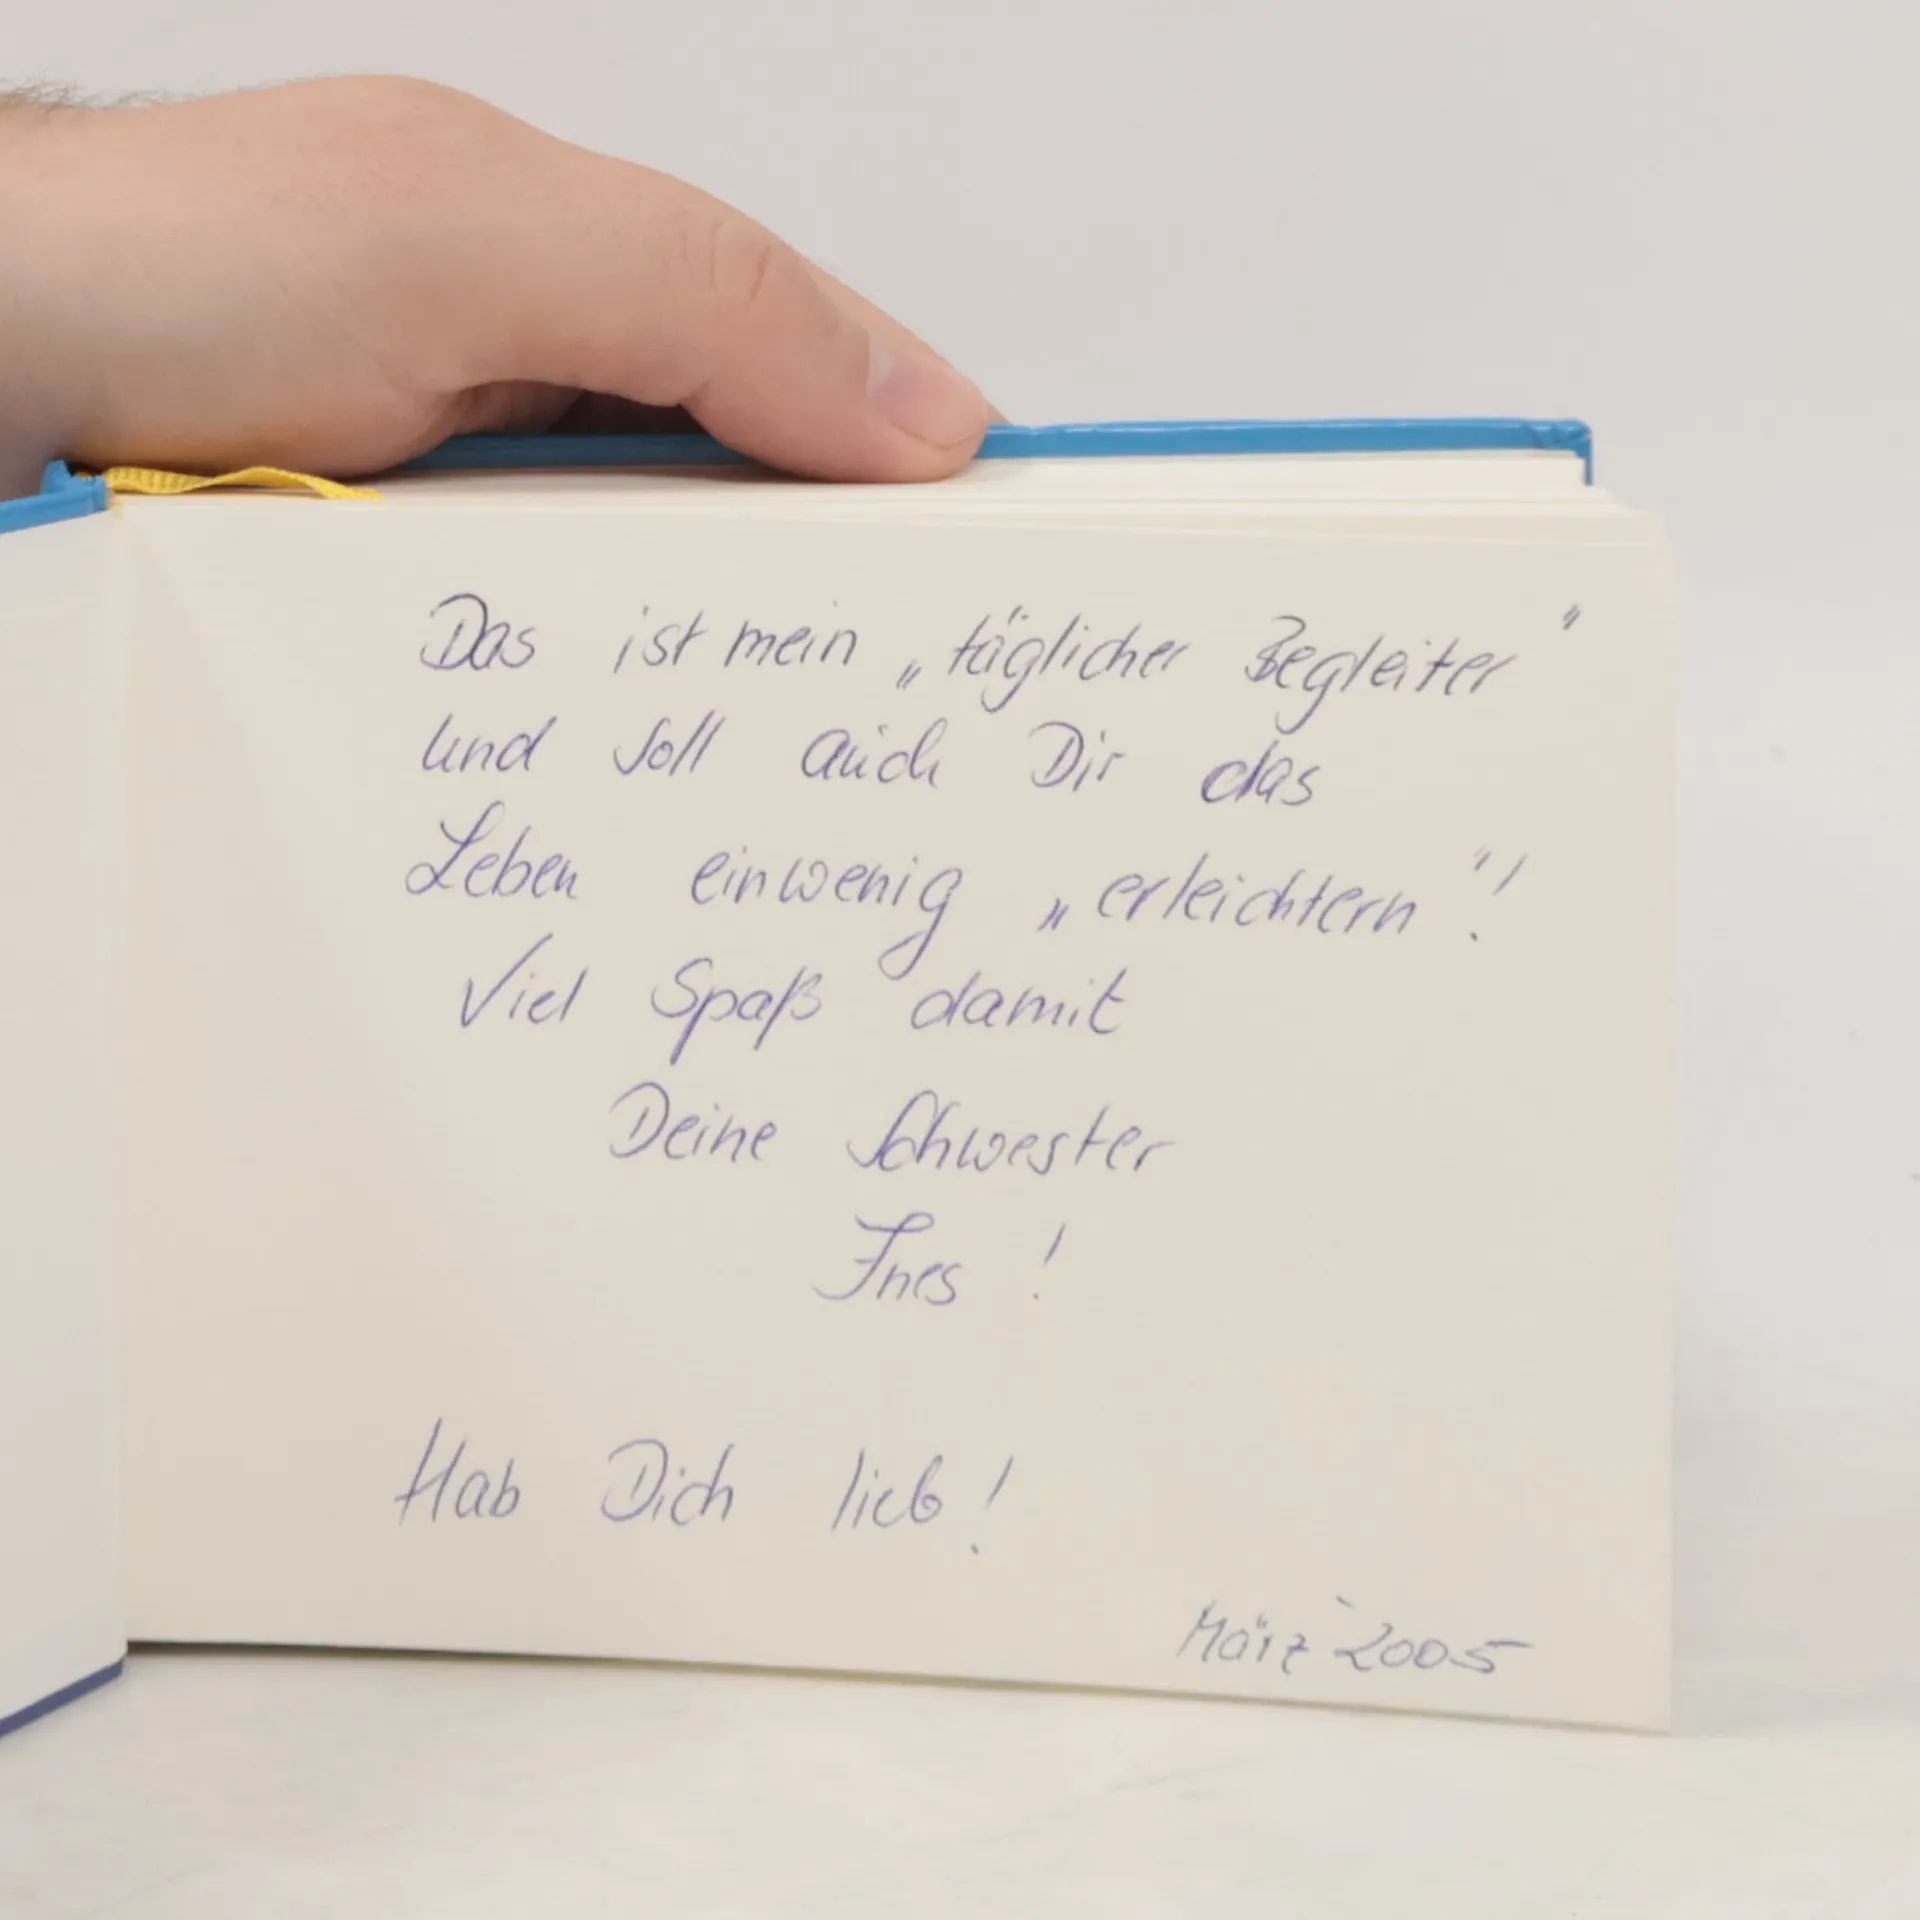 Das ist mein „täglicher Begleiter“
und soll auch Dir das
Leben einwenig „erleichtern“!
Viel Spaß damit
Deine Schwester
Ines!
Hab Dich lieb!
März 2005